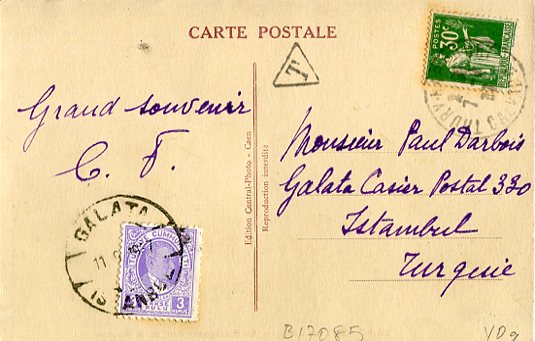 CARTE POSTALE
POSTES
30c
REPUBLIQUE FRANÇAISE
T
Grand souvenir
C. F.
Monsieur Paul Darbois
Galata Casier Postal 330
Istambul
Turquie
Edition Central-Photo - Caen
Reproduction interdite
GALATA
11
3
PULU
B17085